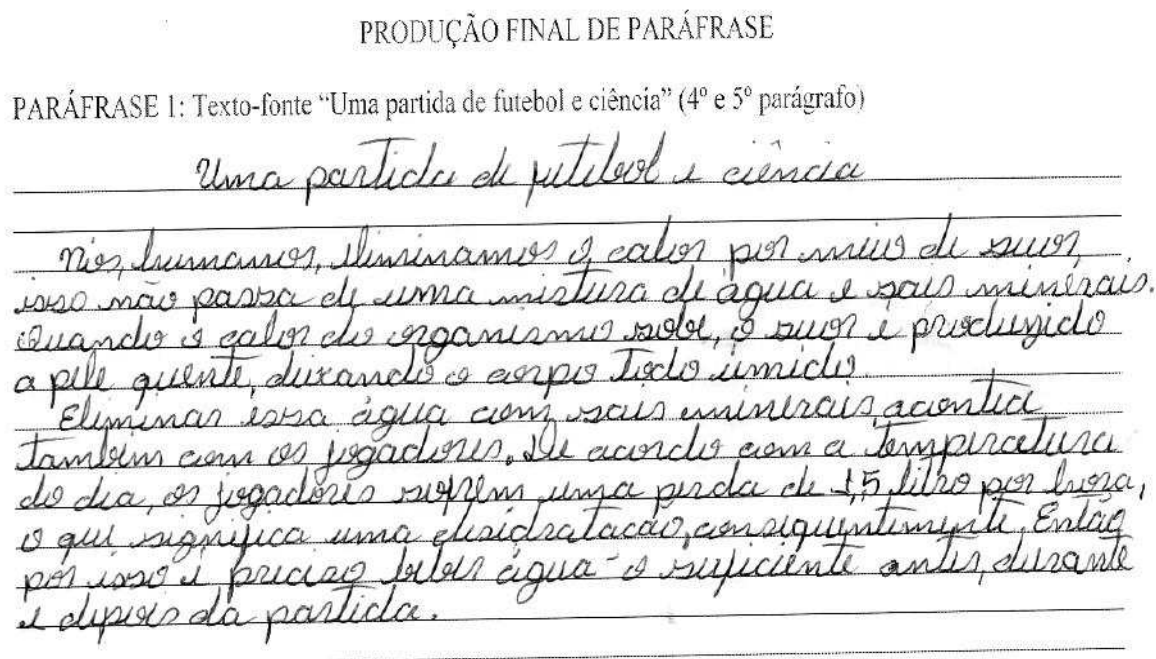 PRODUÇÃO FINAL DE PARÁFRASE
PARÁFRASE 1: Texto-fonte “Uma partida de futebol e ciência” (4º e 5º parágrafo)
Uma partida de futebol e ciência
Nós, humanos, eliminamos o calor por meio de suor,
isso não passa de uma mistura de água e sais minerais.
Quando o calor do organismo sobe, o suor é produzido
a pele quente, duxando o corpo todo úmido.
Eliminar essa água com sais minerais, acontece
também com os jogadores. De acordo com a temperatura
do dia, os jogadores sofrem uma perda de 1,5 litro por hora,
o que significa uma desidratacão, consequentimente. Então
por isso é preciso beber água o suficiente antes, durante
e depois da partida.